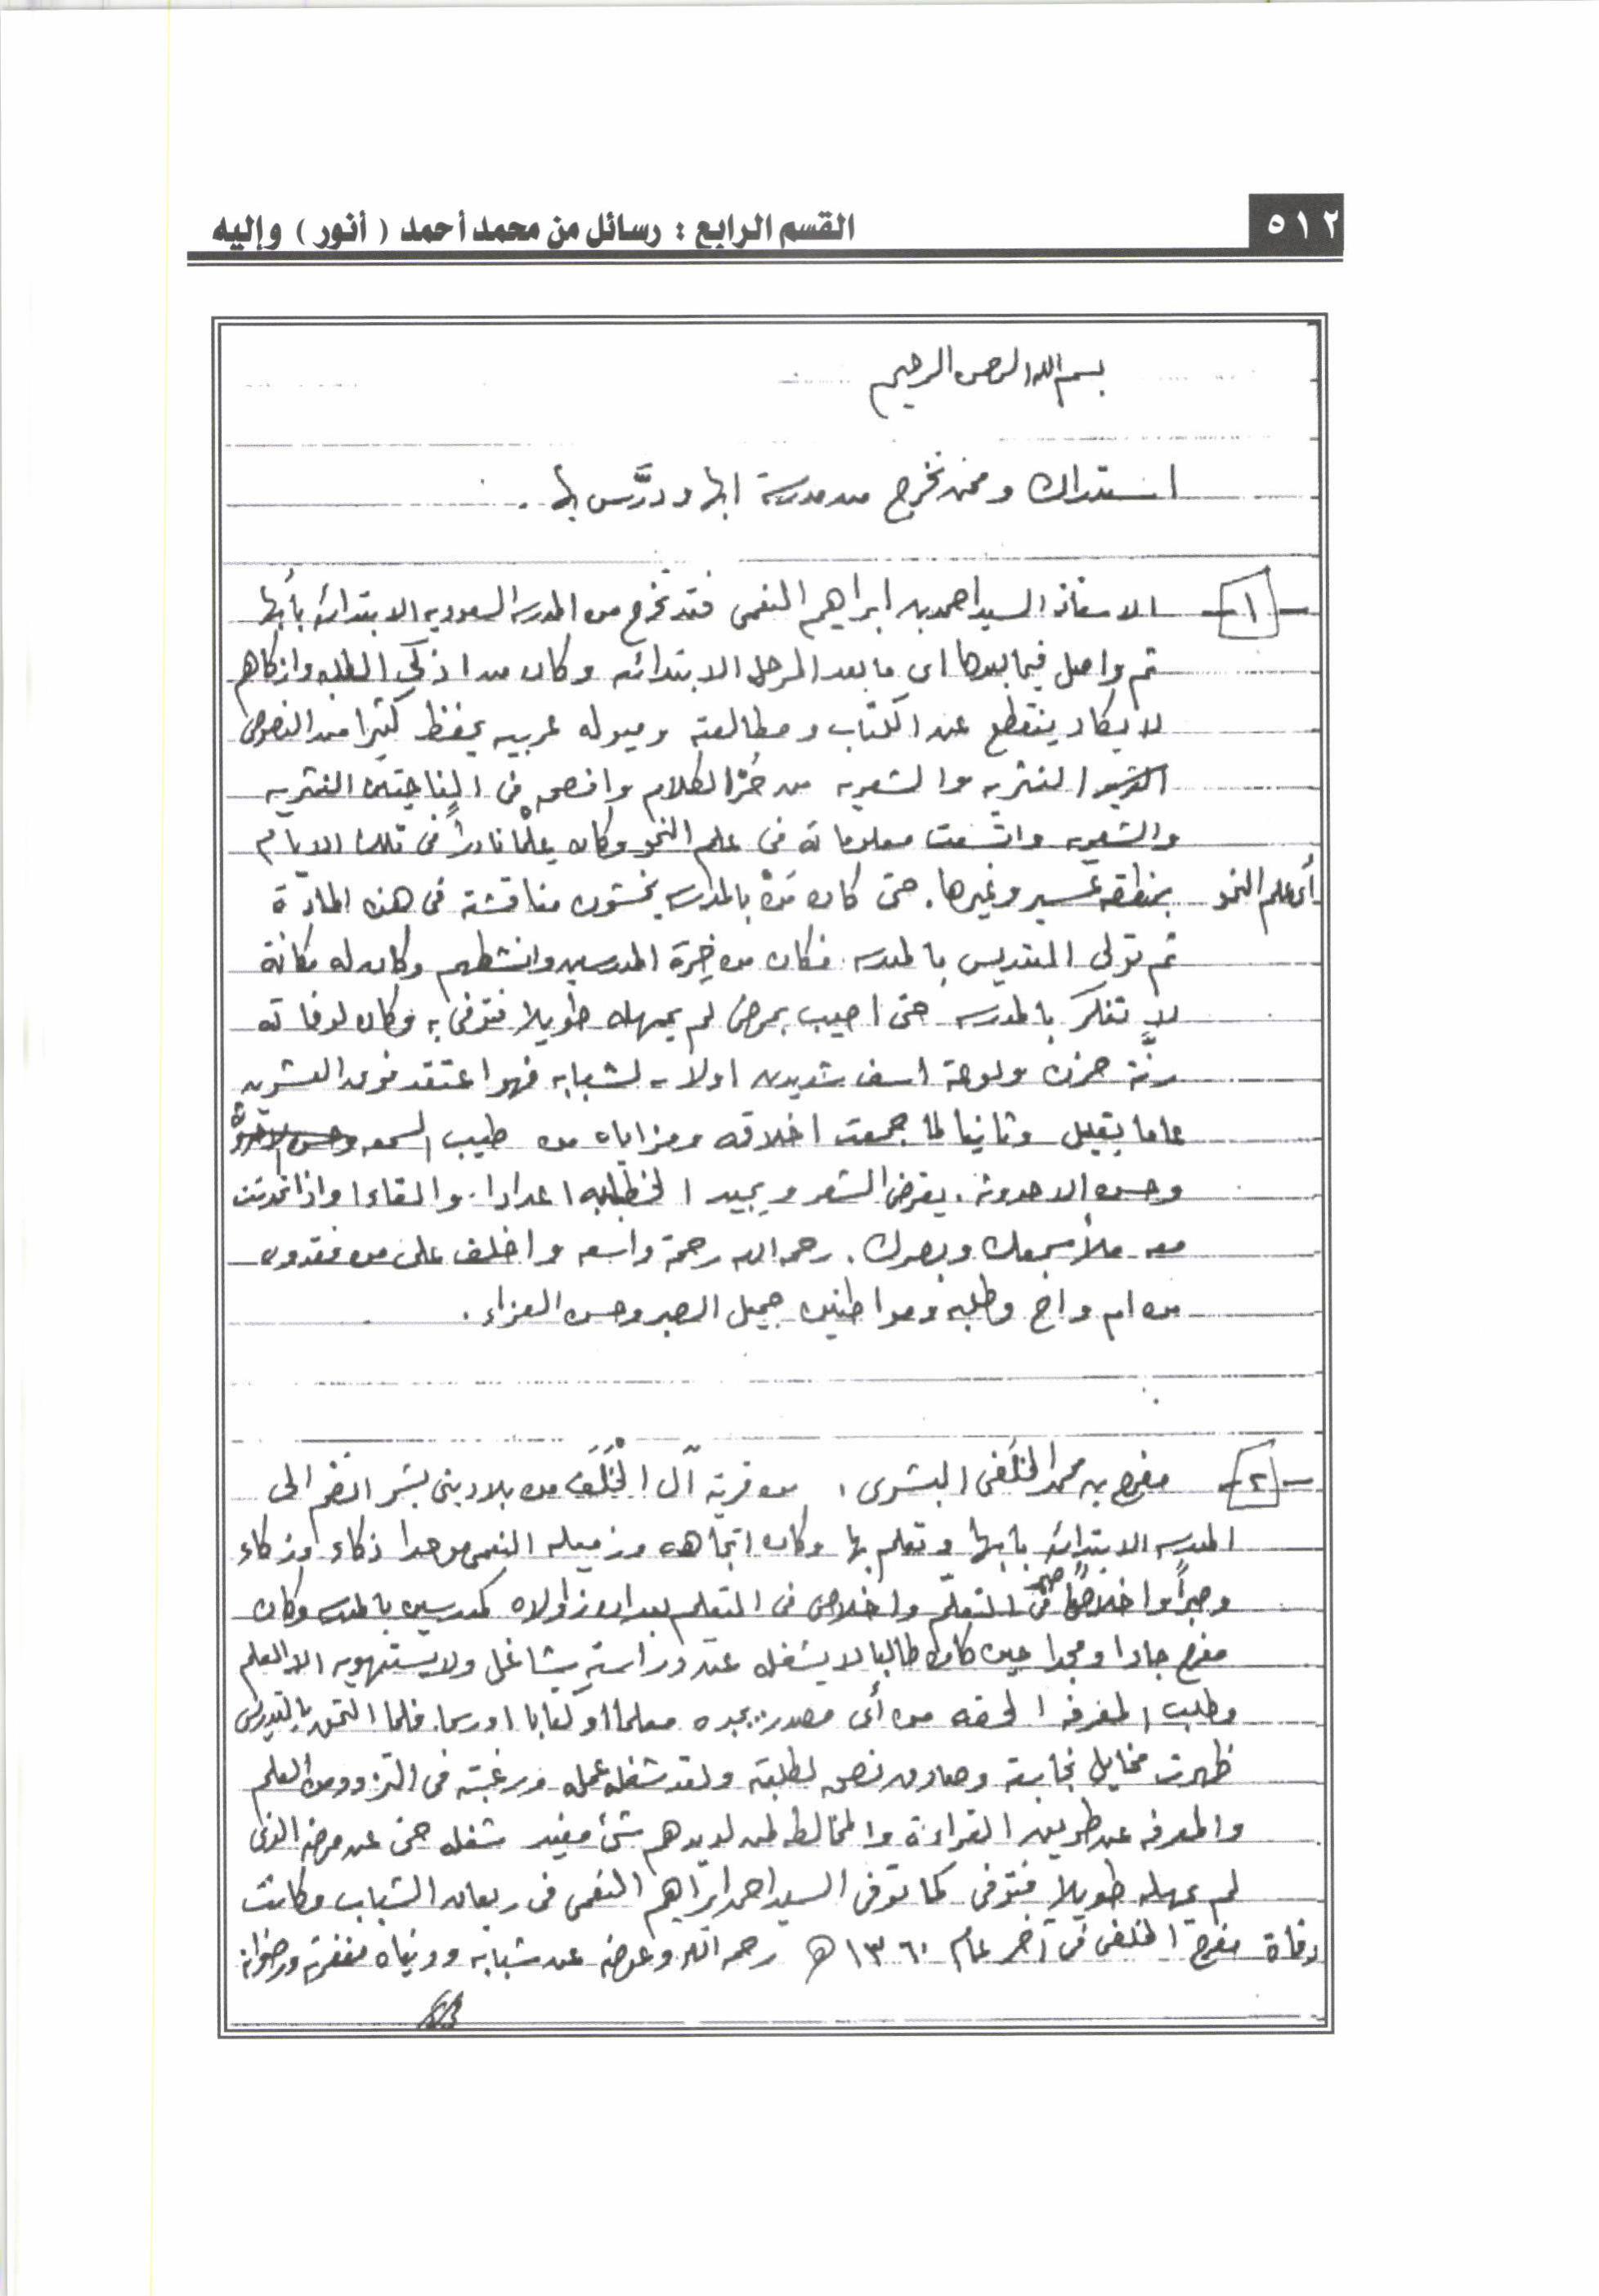 ٥١٢
القسم الرابع : رسائل من محمد أحمد ( أنور ) وإليه
بسم الله الرحمن الرحيم
استدراك وممن تخرج من مدرسة ابها ودرَّس بها .
-١- الاستاذ السيد احمد بن ابراهيم النعمى فقد تخرج من المدرسه السعوديه الابتدائيه بأبها
ثم واصل فيما بعدها اى ما بعد المرحله الابتدائيه وكان من اذكى الطلبه وازكاهم
لا يكاد ينقطع عن الكتاب ومطالعته وميوله عربيه يحفظ كثيرا من النصوص
النثريه والشعريه من حُرّ الكلام وافصحه فى الناحيتين النثريه
والشعريه واتسعت معلوماته فى علم النحو وكان علمًا نادراً فى تلك الايام
أى علم النحو بمنطقه عسير وغيرها . حتى كان مَنْ بالمدرسه يخشون مناقشته فى هذه المادّة
ثم تولى التدريس بالمدرسه فكان من خِيرَة المدرسين وانشطهم وكان له مكانة
لا تنكر بالمدرسه حتى اصيب بمرض لم يمهله طويلا فتوفى به وكان لوفاته
رنَّة حزن ولوعة اسف شديدين اولا لشبابه فهو اعتقد فوق العشرين
عاما بقليل وثانيا لما جمعت اخلاقه ومزاياه من طيب السمعه
وحسن الاحدوثه . يقرض الشعر ويجيد الخطابه اعدادا والقاءا واذا تحدثت
معه ملأ سمعك وبصرك . رحمه الله رحمة واسعه واخلف على من فقدوه
من ام واخ وطلبه ومواطنين جميل الصبر وحسن العزاء .
-٢- مفرح بن محمد الخَلَفى البشرى ، من قرية آل الخَلَفْ من بلاد بنى بشر انضم الى
المدرسه الابتدائيه بابها وتعلم بها وكان اتجاهه وزميله النعمى موحدا ذكاء وزكاء
وصبراً واخلاصًا فى التعلّم واخلاص فى التعليم بعد ان زاولاه كمدرسين بالمدرسه وكان
مفرح جادا ومجدا حين كان طالبا لا يشغله عن دراسته شاغل ولا يستهويه الا العلم
وطلب المعرفه الحقه من أى مصدر يجده معلما او كتابا او رسما. فلما التحق بالتدريس
ظهرت مخايل نجابته وصادق نصحه لطلبته ولقد شغله عمله ورغبته فى التزود من العلم
والمعرفه عن طريق القراءة والمخالطه لمن لديهم شئ مفيد شغله حتى عن مرضه الذى
لم يمهله طويلا فتوفى كما توفى السيد احمد ابراهيم النعمى فى ريعان الشباب وكانت
وفاة مفرح الخلفى فى آخر عام ١٣٦٠ هـ رحمه الله وعوضه عن شبابه ودنياه مغفرته ورضوانه